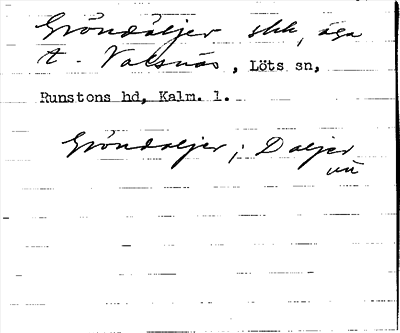 Gröndaljer skk, äga
t. Valsnäs, Löts sn,
Runstens hd, Kalm. l.
Gröndaljer; Daljer
uä